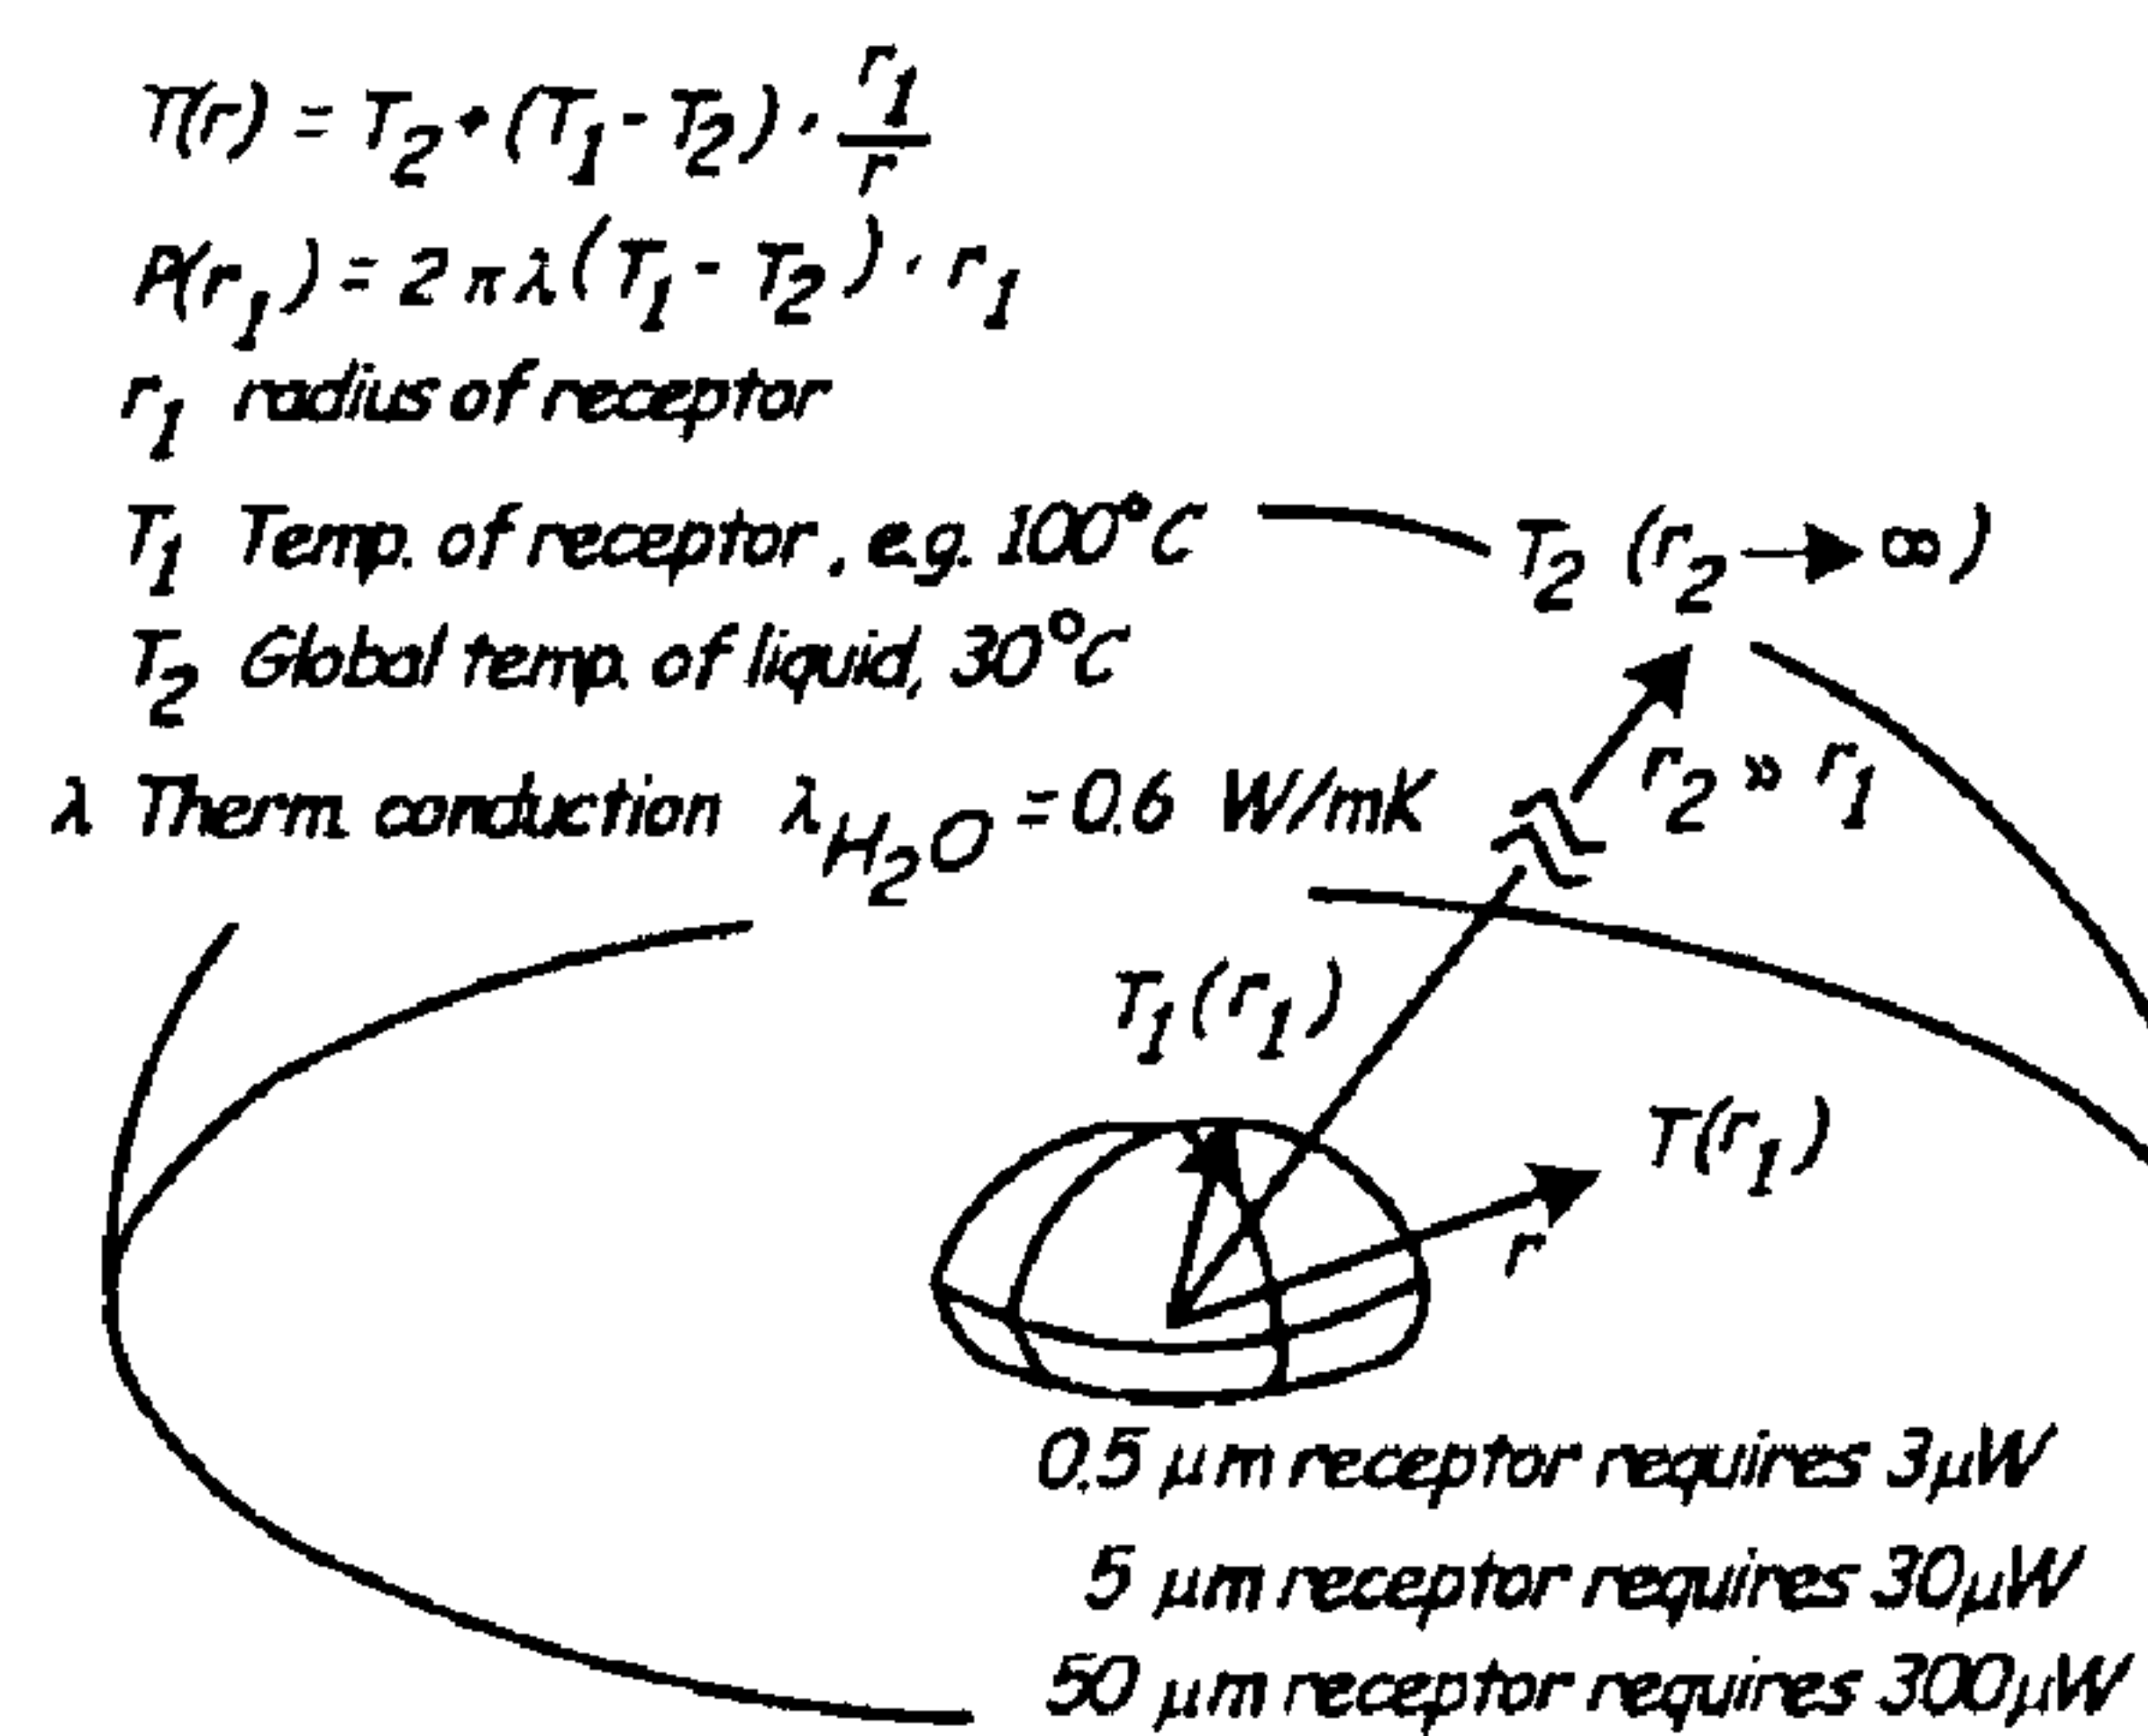 T(r) = T₂ · (T₁ - T₂) · r₁/r
P(r₁) = 2πλ(T₁ - T₂) · r₁
r₁ radius of receptor
T₁ Temp. of receptor, e.g. 100°C
T₂ (r₂ → ∞)
T₂ Global temp. of liquid, 30°C
r₂ » r₁
λ Therm. conduction λH₂O = 0.6 W/mK
T₁(r₁)
T(r₁)
r
0.5 μm receptor requires 3μW
5 μm receptor requires 30μW
50 μm receptor requires 300μW